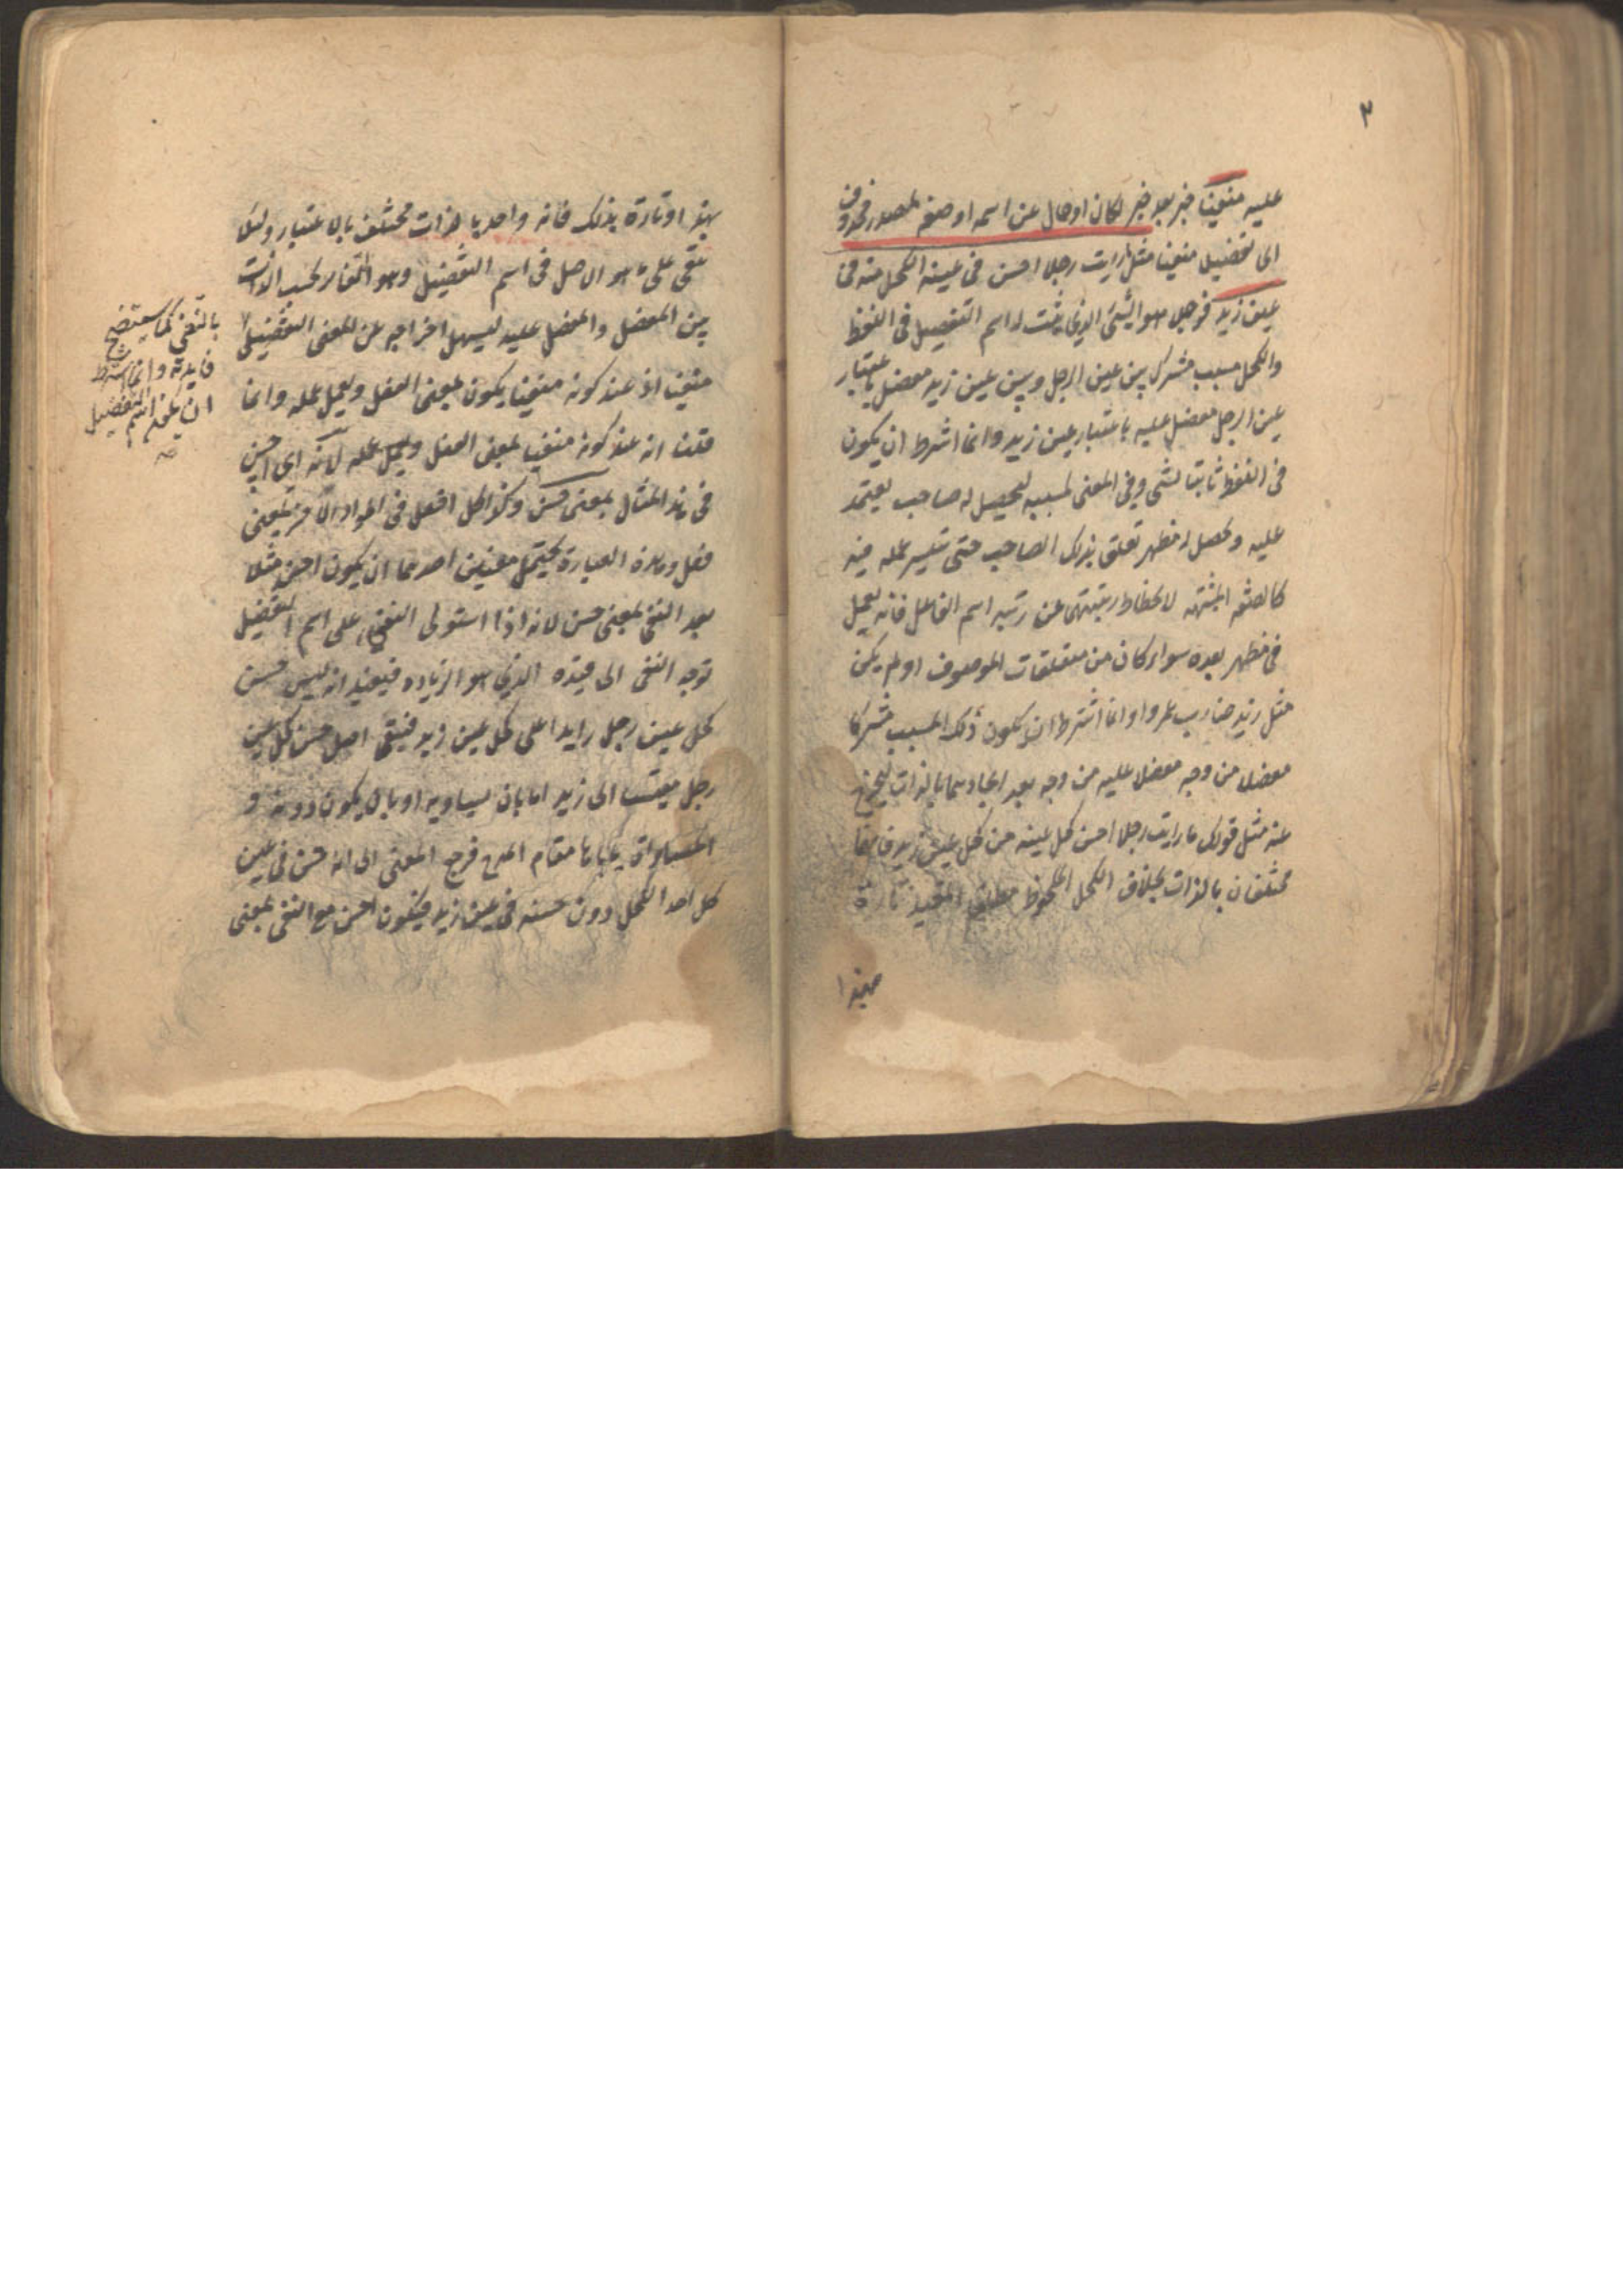 ٣
عليه منفيا خبر بعد خبر لكان او حال عن اسمه او صفة لمصدر محذوف
اى تفضيلا منفيا مثل ما رايت رجلا احسن فى عينه الكحل منه فى
عين زيد فرجلا هو الشئ الذى يثبت له اسم التفضيل فى اللفظ
والكحل مسبب مشترك بين عين الرجل وبين عين زيد مفضل باعتبار
عين الرجل مفضل عليه باعتبار عين زيد وانما اشترط ان يكون
فى اللفظ ثابتا لشئ وفى المعنى لمسببه ليحصل له صاحب يعتمد
عليه ويحصل له مظهر تعلق بذلك الصاحب حتى تيسر عمله فيه
كالصفة المشبهة لانحطاط رتبتهما عن رتبة اسم الفاعل فانه يعمل
فى مظهر بعده سواء كان من متعلقات الموصوف او لم يكن
مثل زيد ضارب عمروا وانما اشترط ان يكون ذلك المسبب مشتركا
مفضلا من وجه مفضلا عليه من وجه بعد اتحادهما بالذات ليخرج
عنه مثل قولك ما رايت رجلا احسن كحل عينه من كحل عين زيد فانهما
مختلفان بالذات بخلاف الكحل الملحوظ مطلق المقيد تارة
بهذا
بهذا وتارة بذلك فانه واحد بالذات مختلف بالاعتبار ولئلا
يبقى على ما هو الاصل فى اسم التفضيل وهو التغاير بحسب الذات
بين المفضل والمفضل عليه ليسهل اخراجه عن المعنى التفضيلى
منفيا اذ عند كونه منفيا يكون بمعنى الفعل ويعمل عمله وانما
قلت انه عند كونه منفيا بمعنى الفعل ويعمل عمله لانه اى احسن
فى هذا المثال بمعنى حسن وكذا كل افعل فى المواد الاخر بمعنى
فعل وهذه العبارة يحتمل معنيين احدهما ان يكون احسن مثلا
بعد النفى بمعنى حسن لانه اذا استولى النفى على اسم التفضيل
توجه النفى الى قيده الذى هو الزيادة فيفيد انه ليس حسن
كحل عين رجل زايدا على كحل عين زيد فيبقى اصل حسن كحل عين
رجل مقيسا الى زيد اما بان يساويه او بان يكون دونه و
المساواة يأباها مقام المدح فرجع المعنى الى انه حسن فى عين
كل احد الكحل دون حسنه فى عين زيد فيكون احسن مع النفى بمعنى
بالنفى كما سيتضح
فايدته وانما شرط
ان يكون اسم التفضيل
صح